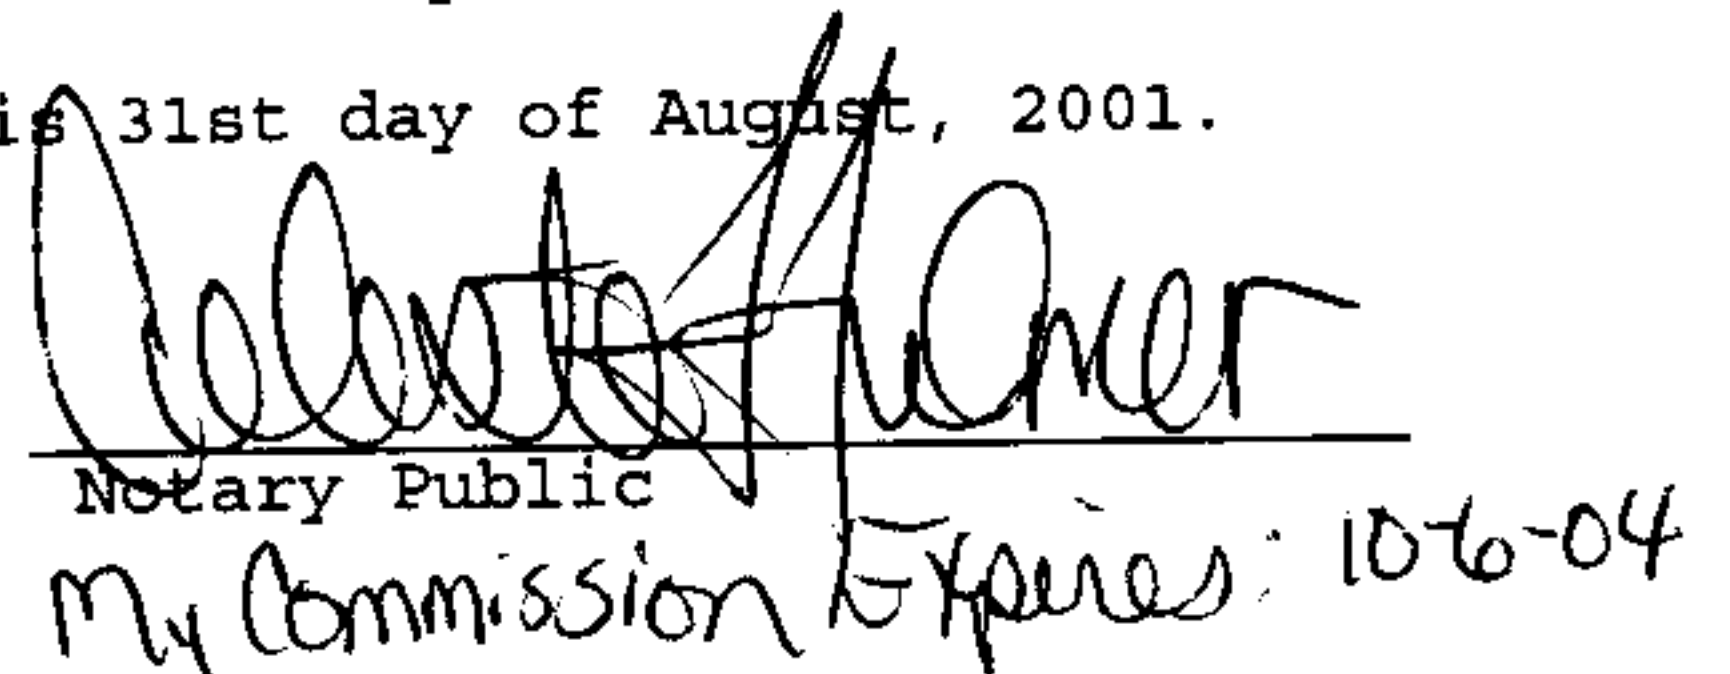 is 31st day of August, 2001.
Notary Public
My Commission Expires: 10-6-04